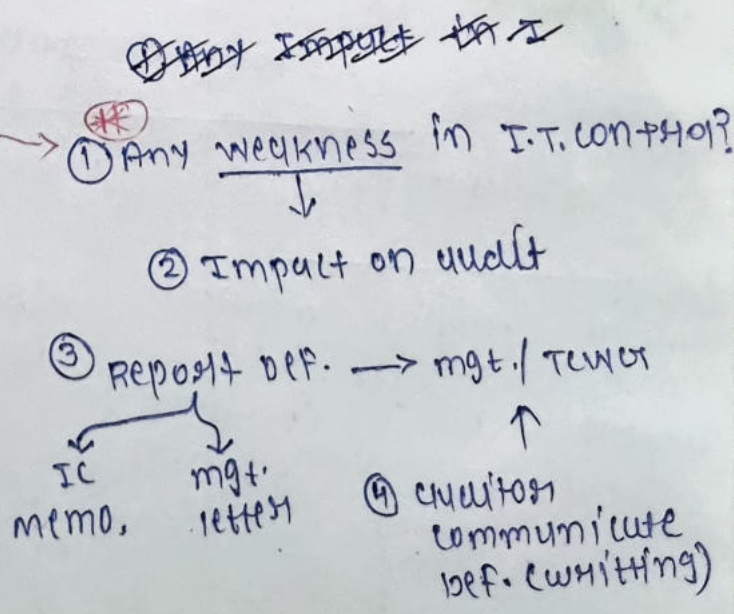 ① Any Impact in I
**
① Any weakness in I.T. control?
② Impact on audit
③ Report Def. → mgt./ TCWG
IC memo,
mgt. letter
④ auditor
communicate
Def. (writting)